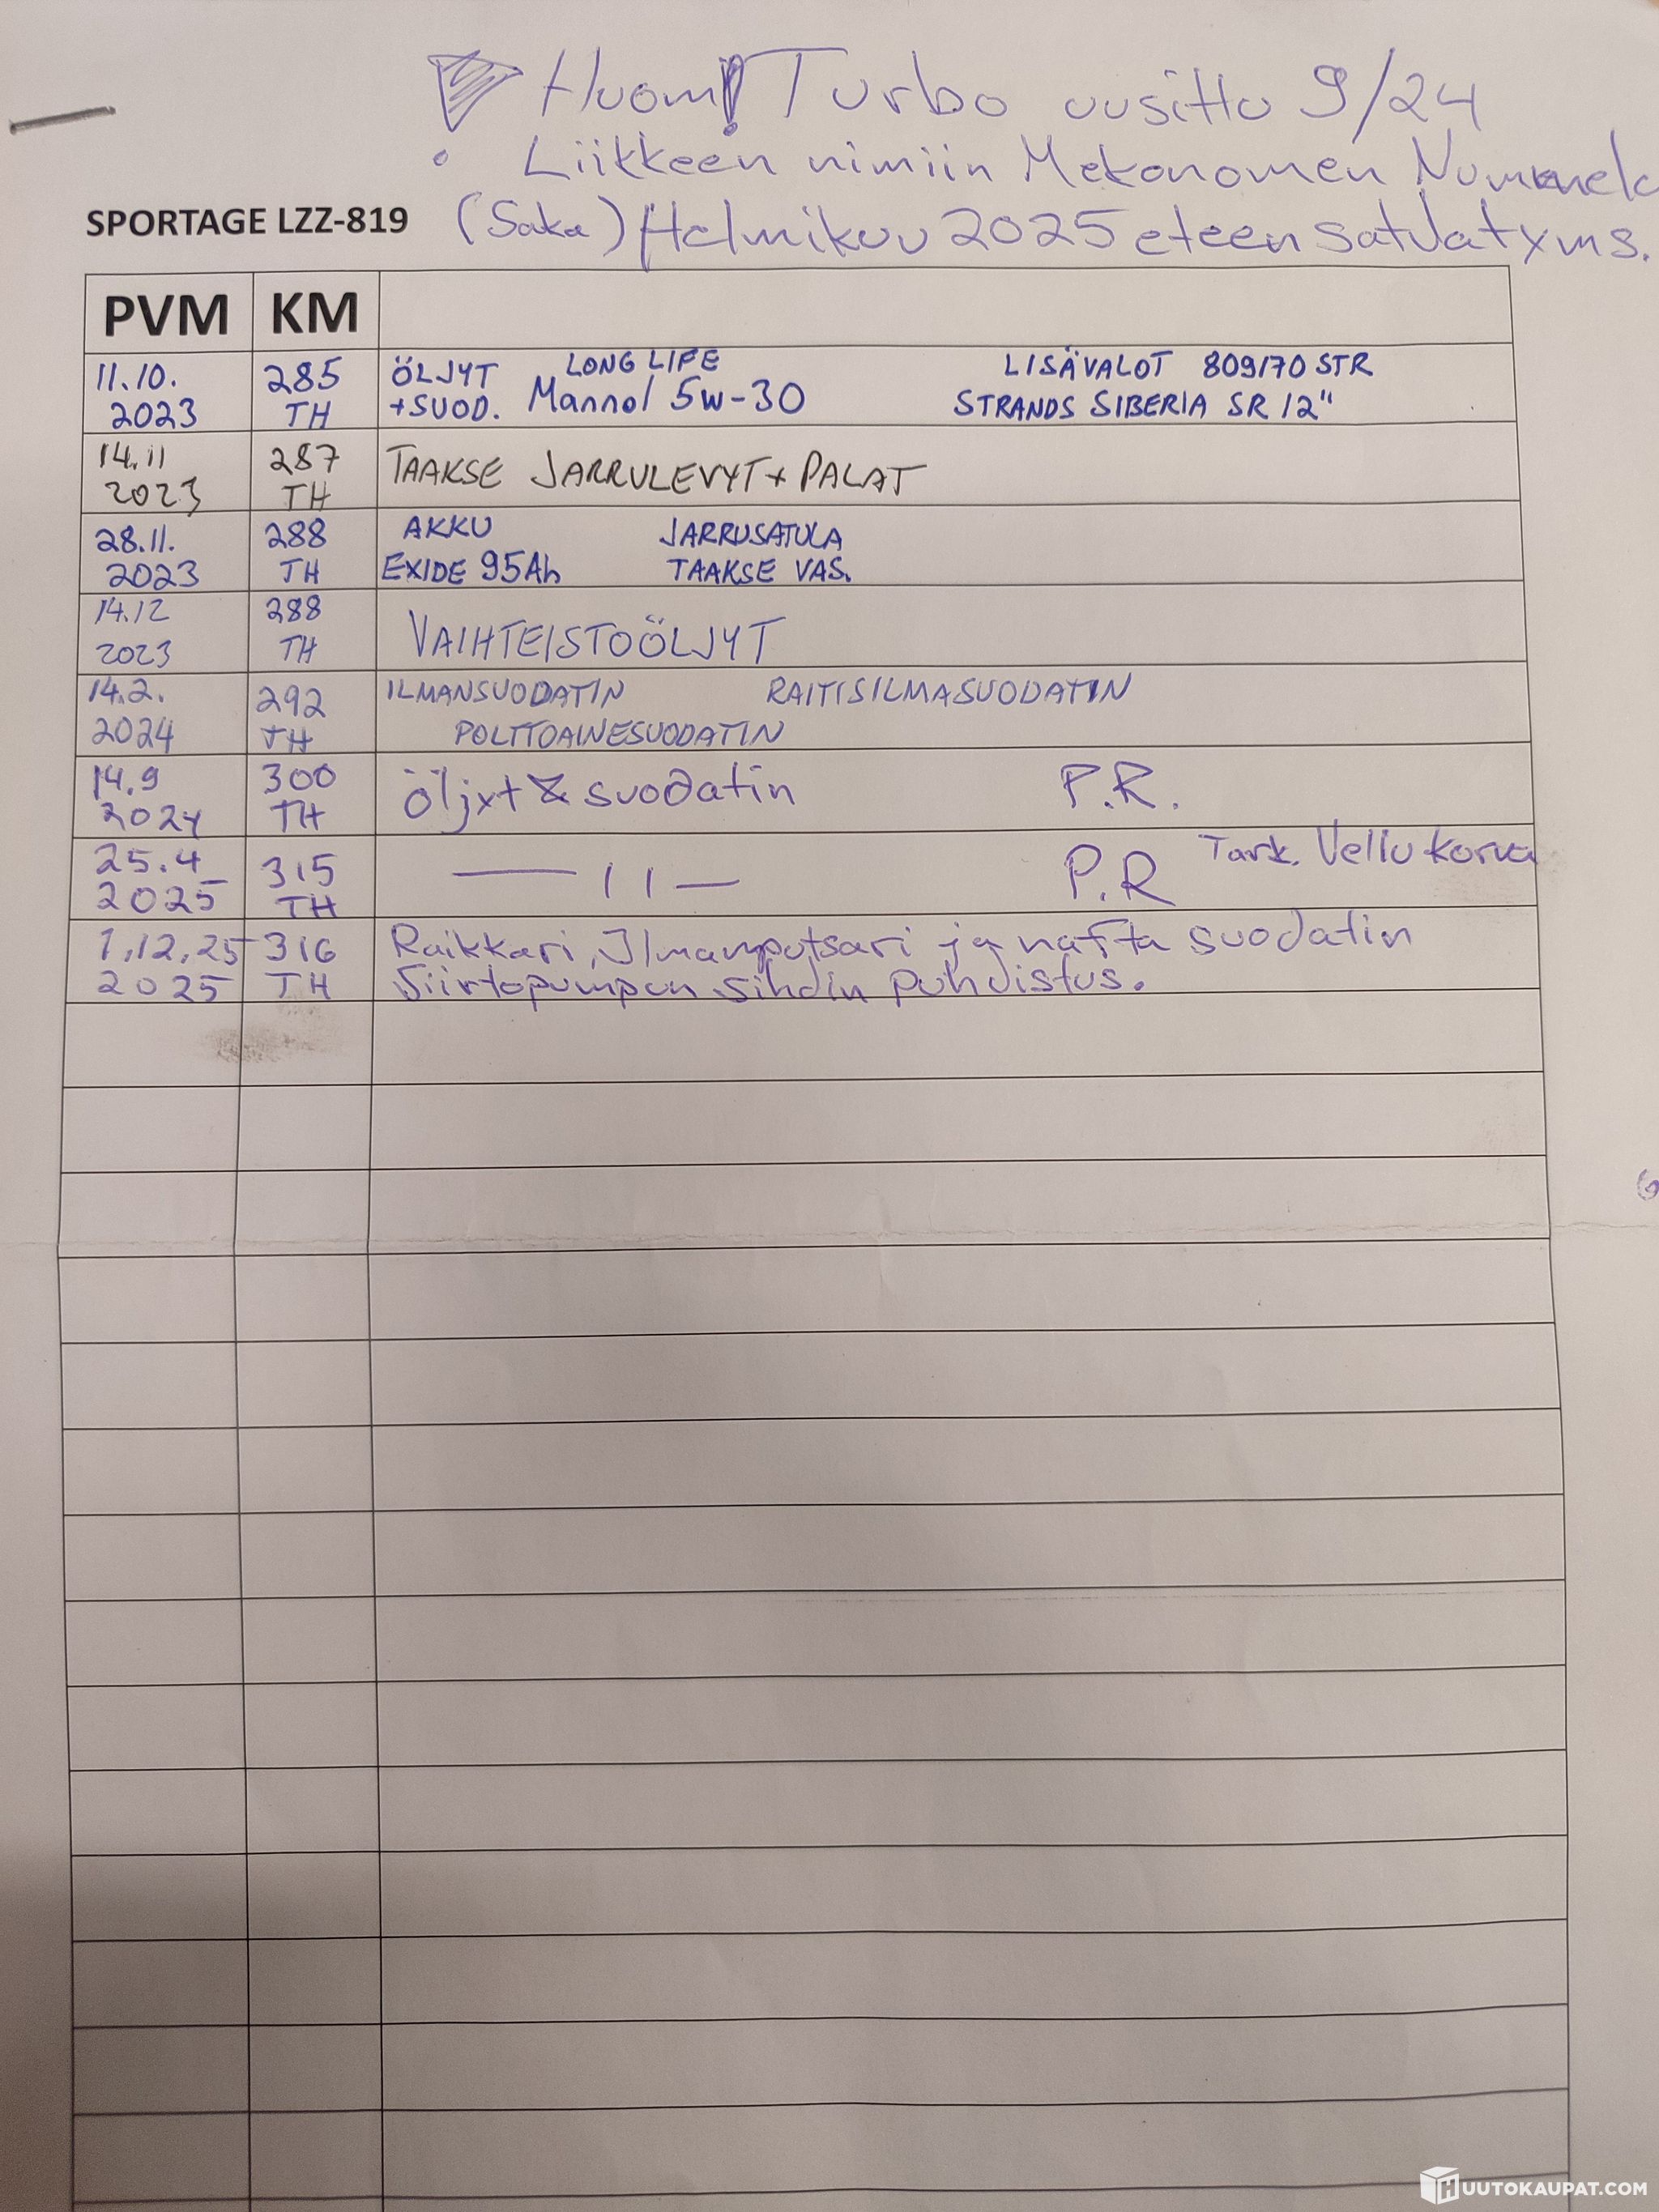 Huom! Turbo uusittu 9/24
• Liikkeen nimiin Mekonomen Nummela
SPORTAGE LZZ-819 (Saka) Helmikuu 2025 eteen satulat yms.
PVM KM
11.10. 285 ÖLJYT LONG LIFE LISÄVALOT 809170 STR
2023 TH +SUOD. Mannol 5w-30 STRANDS SIBERIA SR 12"
14.11 287 TAAKSE JARRULEVYT + PALAT
2023 TH
28.11. 288 AKKU JARRUSATULA
2023 TH EXIDE 95Ah TAAKSE VAS.
14.12 288 VAIHTEISTOÖLJYT
2023 TH
14.2. 292 ILMANSUODATIN RAITISILMASUODATIN
2024 TH POLTTOAINESUODATIN
14.9 300 öljyt & suodatin P.R.
2024 TH
25.4 315 — 11 — P.R Tark. Vellu korva
2025 TH
1.12.25 316 Raikkari, Ilmanputsari ja nafta suodatin
2025 TH Siirtopumpun sihdin puhdistus.
HUUTOKAUPAT.COM